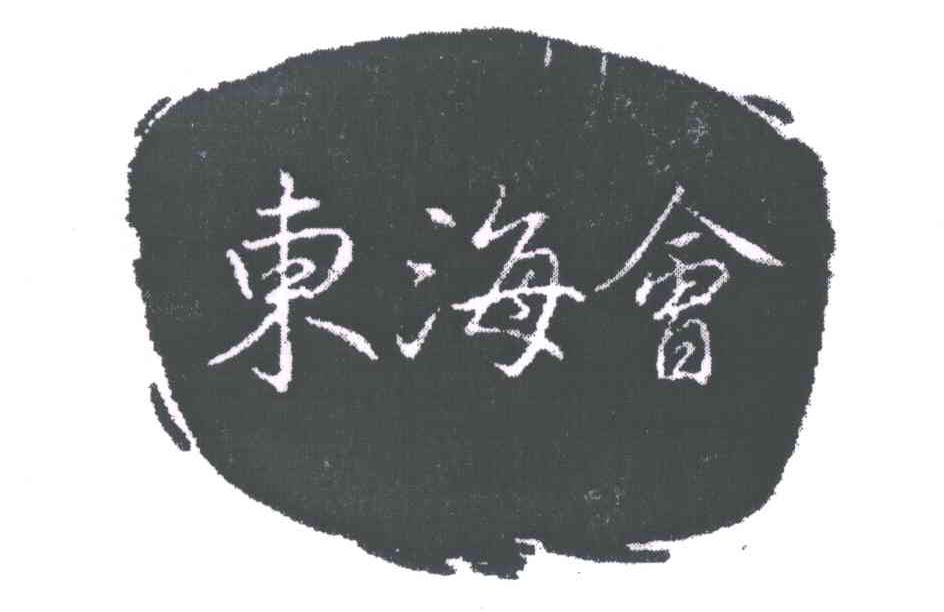 東海會